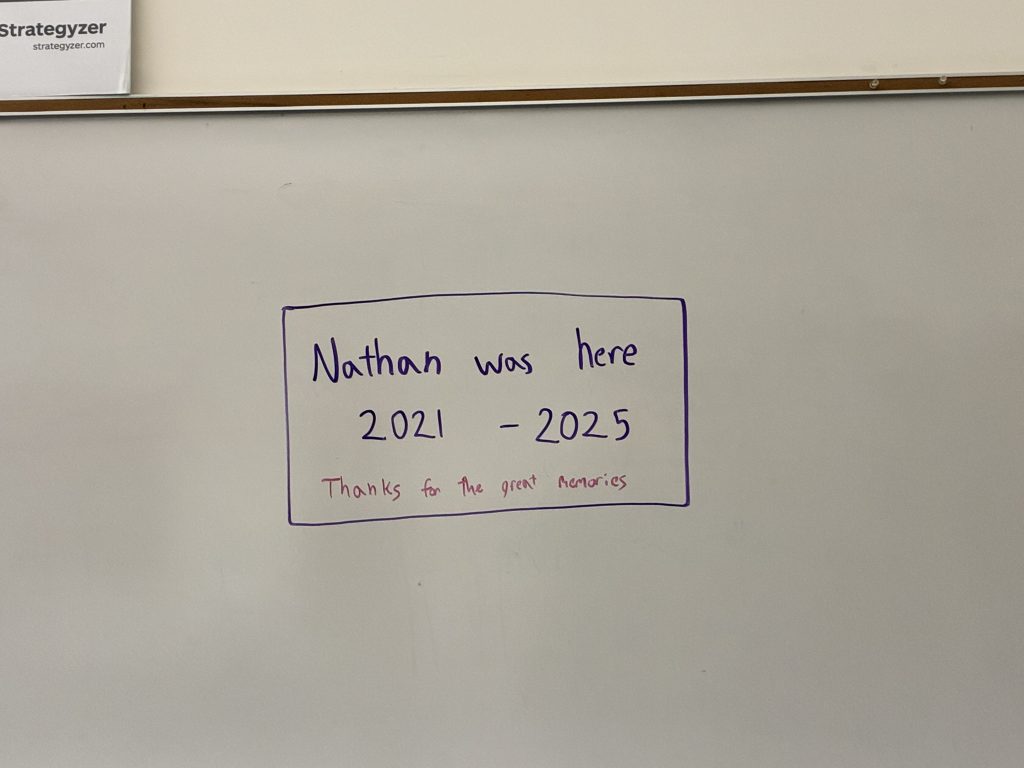 Strategyzer
strategyzer.com
Nathan was here
2021 - 2025
Thanks for the great memories